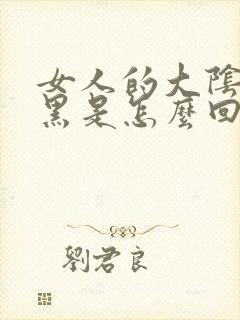 女人的大陰
黑是怎麼回
劉君良